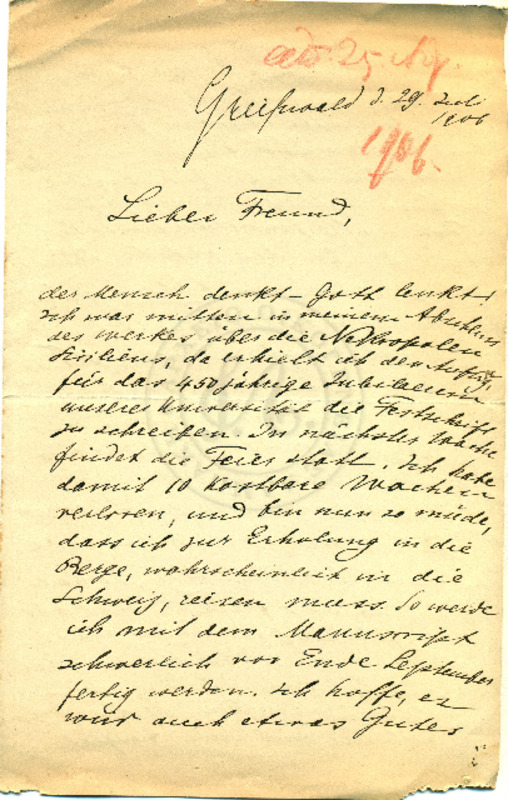 Greifswald d. 29. Juli
1906
1906.
Lieber Freund,
der Mensch denkt – Gott lenkt!
Ich war mitten in meinem
des Werkes über die Nekropolen
Siziliens, da erhielt ich den Auftrag,
für das 450 jährige Jubilaeum
unserer Universität die Festschrift
zu schreiben. In nächster Woche
findet die Feier statt. Ich habe
damit 10 kostbare Wochen
verloren, und bin nun so müde,
dass ich zur Erholung in die
Berge, wahrscheinlich in die
Schweiz, reisen muss. So werde
ich mit dem Manuscript
schwerlich vor Ende September
fertig werden. Ich hoffe, es
wird auch etwas Gutes